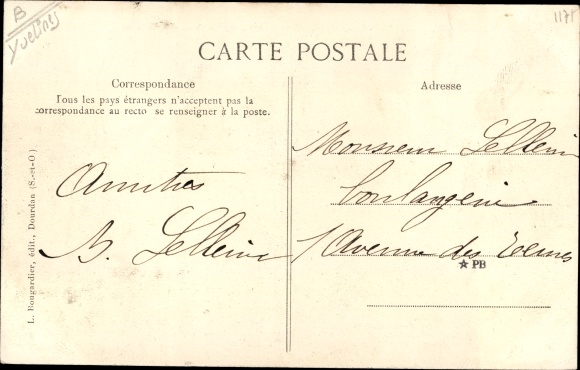 B
Yvelines
117F
CARTE POSTALE
Correspondance
Tous les pays étrangers n'acceptent pas la
correspondance au recto se renseigner à la poste.
Amitiés
B.
Adresse
Monsieur
boulangerie
1 Avenue des
★ PB
L. Bougardier, édit., Dourdan (S.-et-O.)